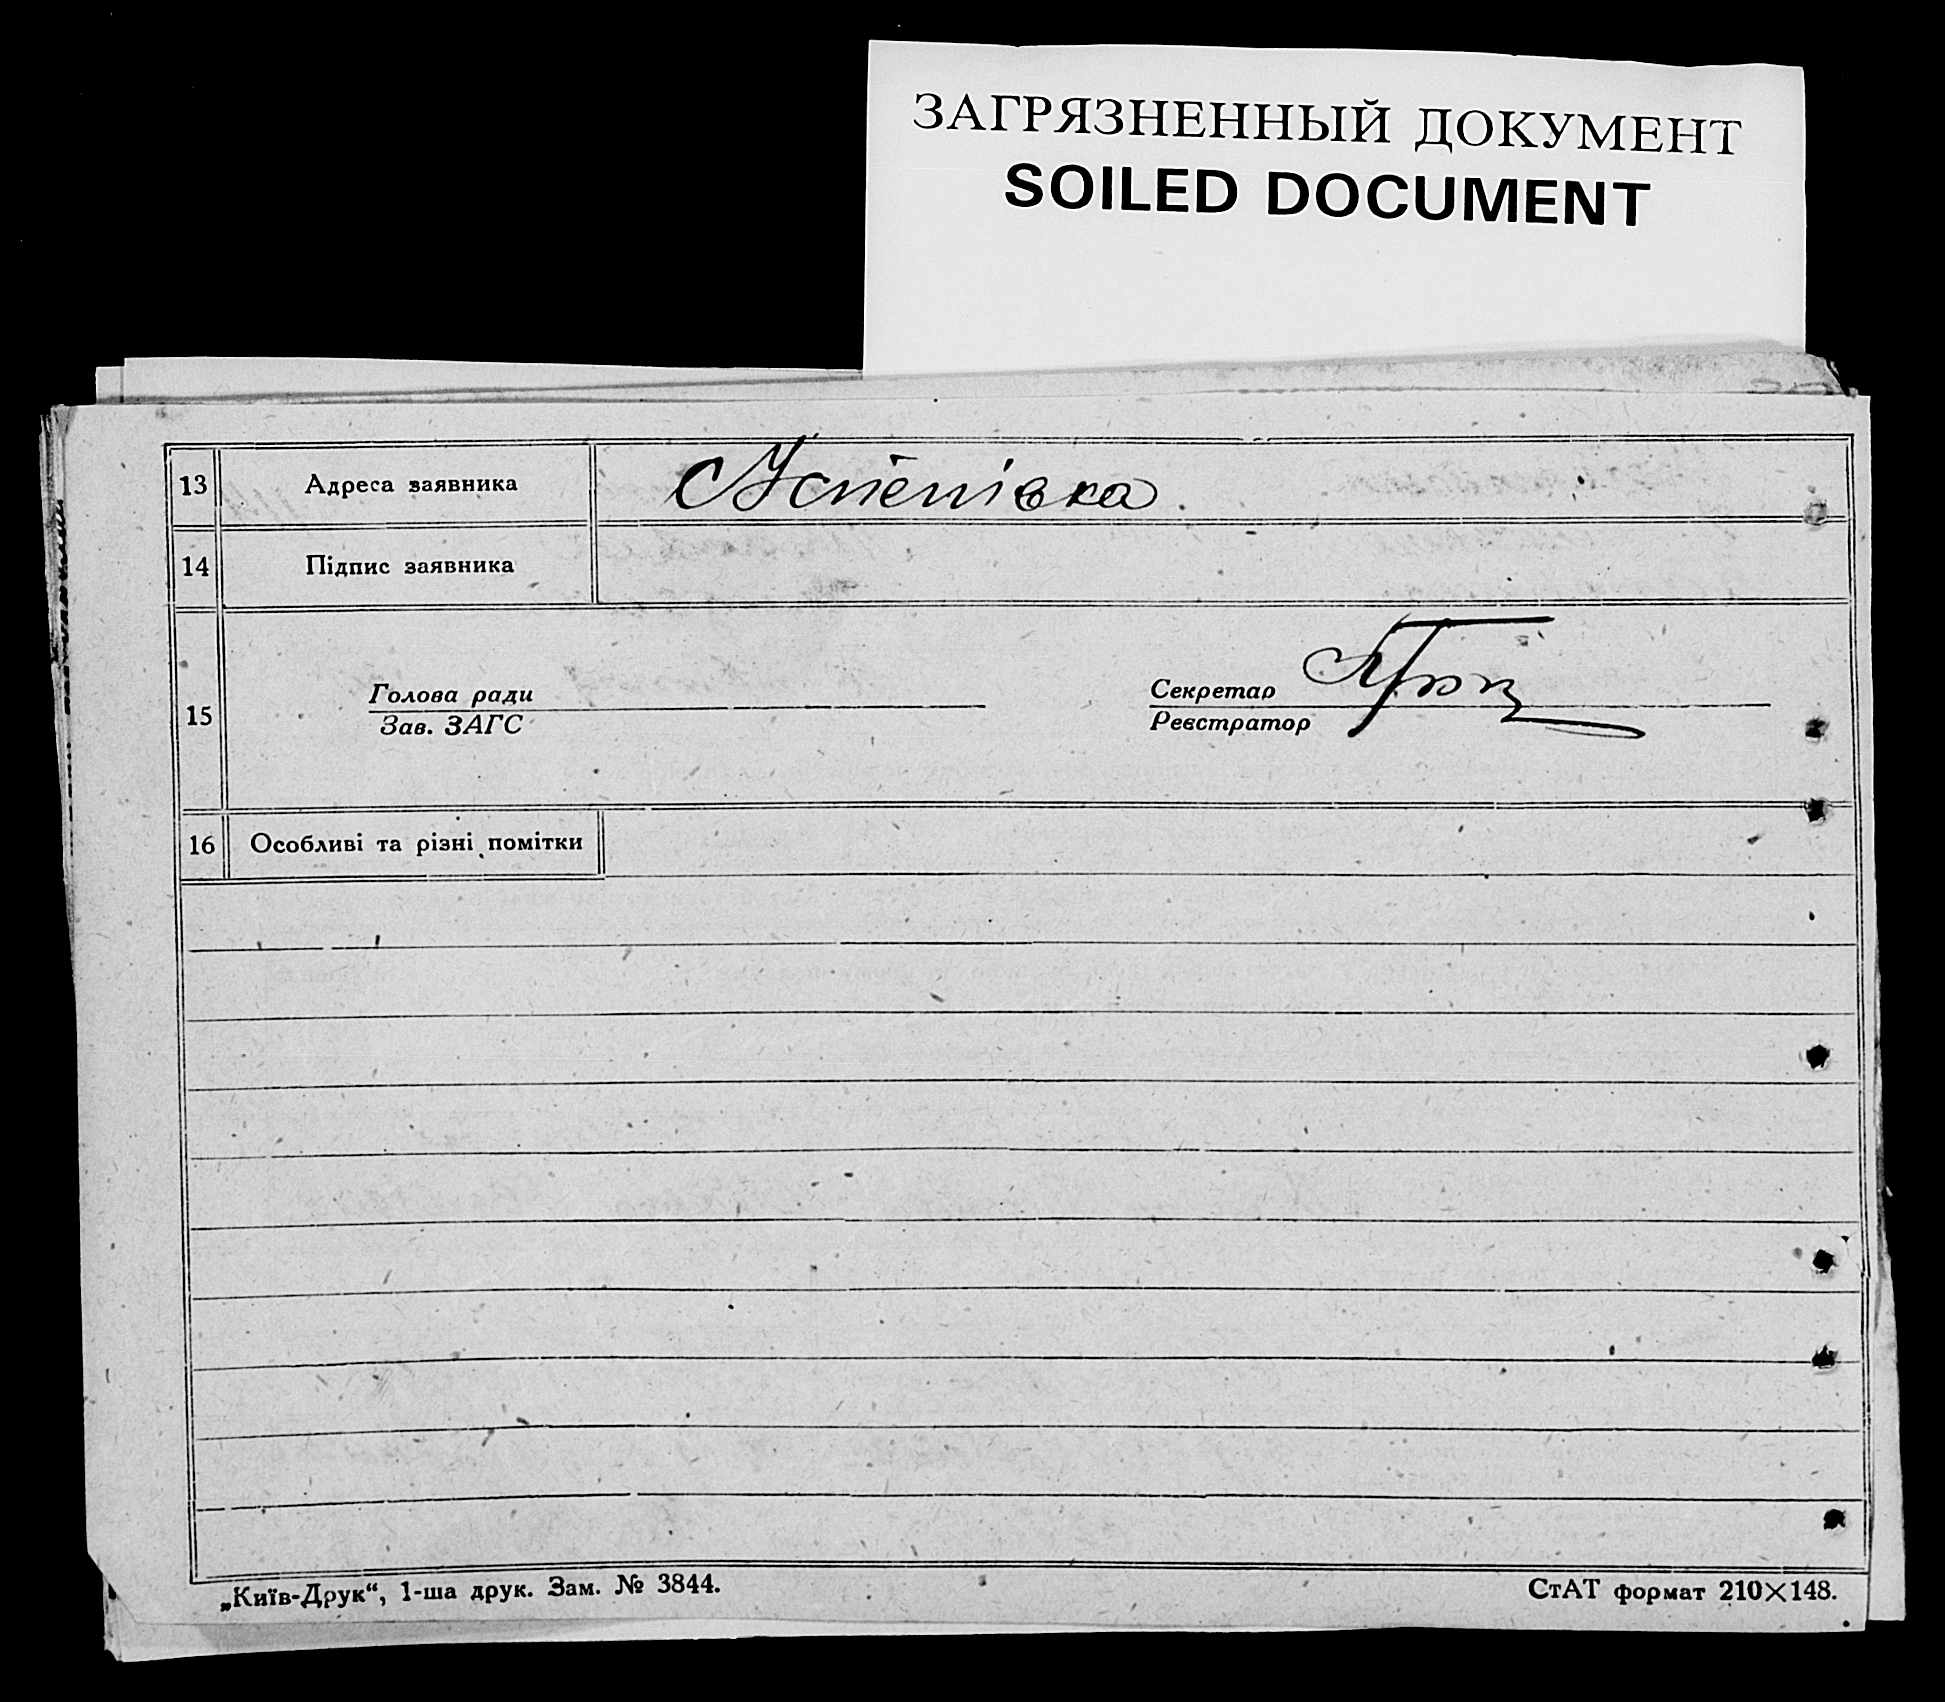 ЗАГРЯЗНЕННЫЙ ДОКУМЕНТ
SOILED DOCUMENT
13 Адреса заявника Успенівка.
14 Підпис заявника
15 Голова ради Секретар
Зав. ЗАГС Реєстратор
16 Особливі та різні помітки
„Київ-Друк“, 1-ша друк. Зам. № 3844. СтАТ формат 210×148.